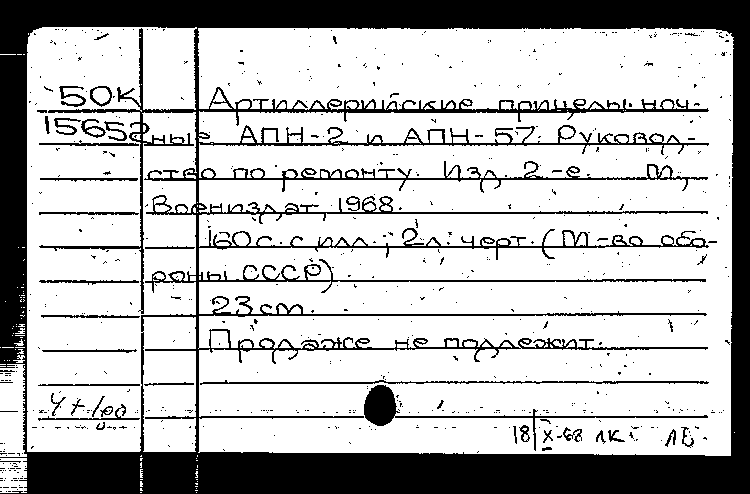 50К Артиллерийские прицелы ноч-
15652 ные АПН-2 и АПН-57. Руковод-
ство по ремонту. Изд. 2-е. М.,
Воениздат, 1968.
160 с. с илл.; 2 л. черт. (М-во обо-
роны СССР)
23 см.
Продаже не подлежит.
18/X-68 ЛК